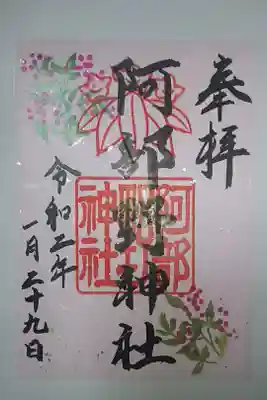 奉拝
阿部野神社
令和二年
一月二十九日
阿部
神社